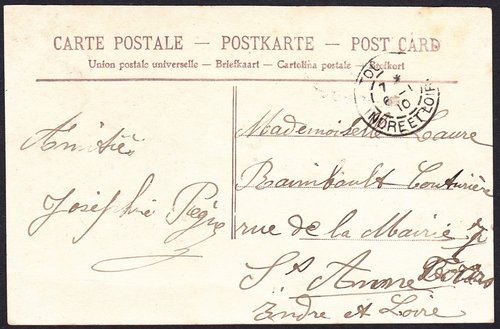 CARTE POSTALE — POSTKARTE — POST CARD
Union postale universelle — Briefkaart — Cartolina postale — Brefkort
7
10
INDRE ET LOIRE
Amitiés
Joséphine
Mademoiselle Laure
Raimbault Couturière
rue de la Mairie
Ste Anne Tours
Indre et Loire